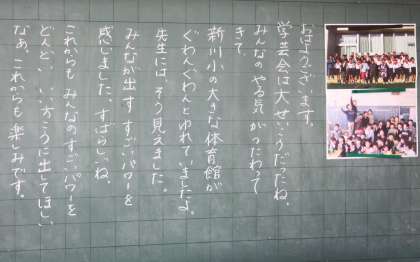 おはようございます。
学芸会は大せいこうだったね。
みんなのやる気がつたわって
きて、
新川小の大きな体育館が
ぐわんぐわんとゆれていましたよ。
先生には、そう見えました。
みんなが出すすごいパワーを
感じました。すばらしいね。
これからもみんなのすごいパワーを
どんどんいいほうに出してほしい
なあ。これからも楽しみです。